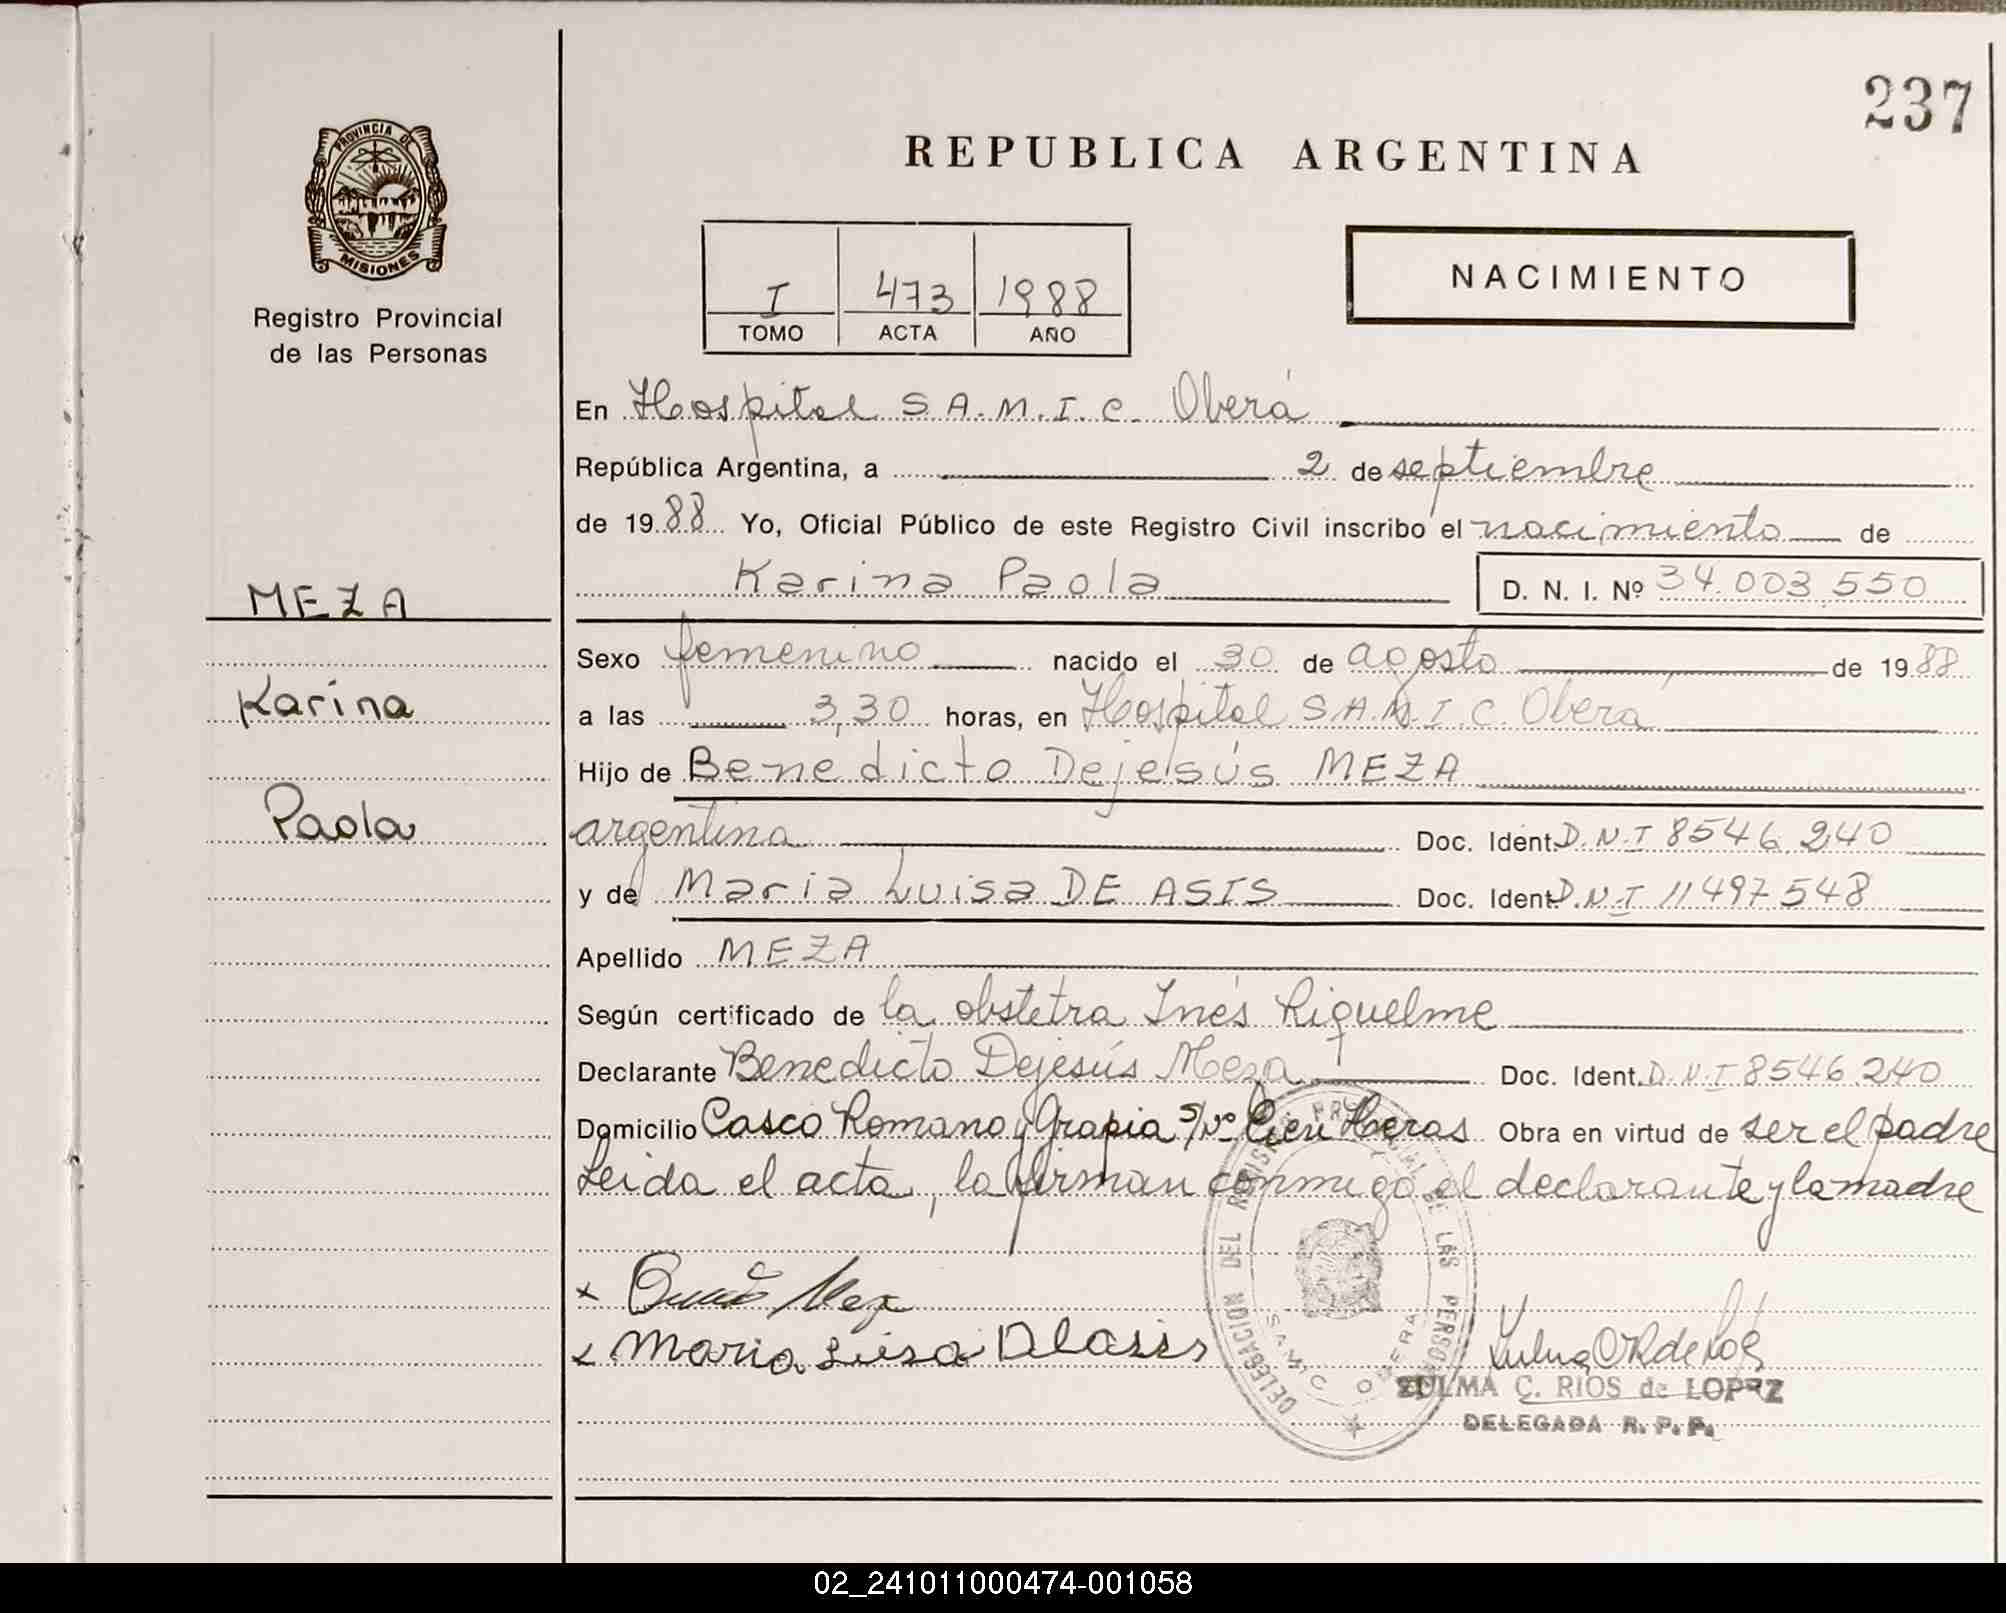 237
REPUBLICA ARGENTINA
PROVINCIA DE
MISIONES
Registro Provincial
de las Personas
I 473 1988
TOMO ACTA AÑO
NACIMIENTO
En Hospital S.A.M.I.C. Oberá
República Argentina, a 2 de septiembre
de 1988 Yo, Oficial Público de este Registro Civil inscribo el nacimiento de
Karina Paola D. N. I. Nº 34.003.550
MEZA
Sexo femenino nacido el 30 de agosto de 1988
Karina
a las 3,30 horas, en Hospital S.A.M.I.C. Oberá
Hijo de Benedicto Dejesús MEZA
Paola
argentina Doc. Ident. D.N.I 8546.240
y de Maria Luisa DE ASIS Doc. Ident. D.N.I 11497.548
Apellido MEZA
Según certificado de la obstetra Inés Riquelme
Declarante Benedicto Dejesús Meza Doc. Ident. D.N.I 8546.240
Domicilio Casco Romano y Grapia s/Nº Heras Obra en virtud de ser el padre
Leida el acta, la firman conmigo el declarante y la madre
Meza
Maria Luisa
DELEGACION DEL REGISTRO PROVINCIAL DE LAS PERSONAS
SAMIC OBERA
ZULMA C. RIOS de LOPEZ
DELEGADA R. P. P.
02_241011000474-001058